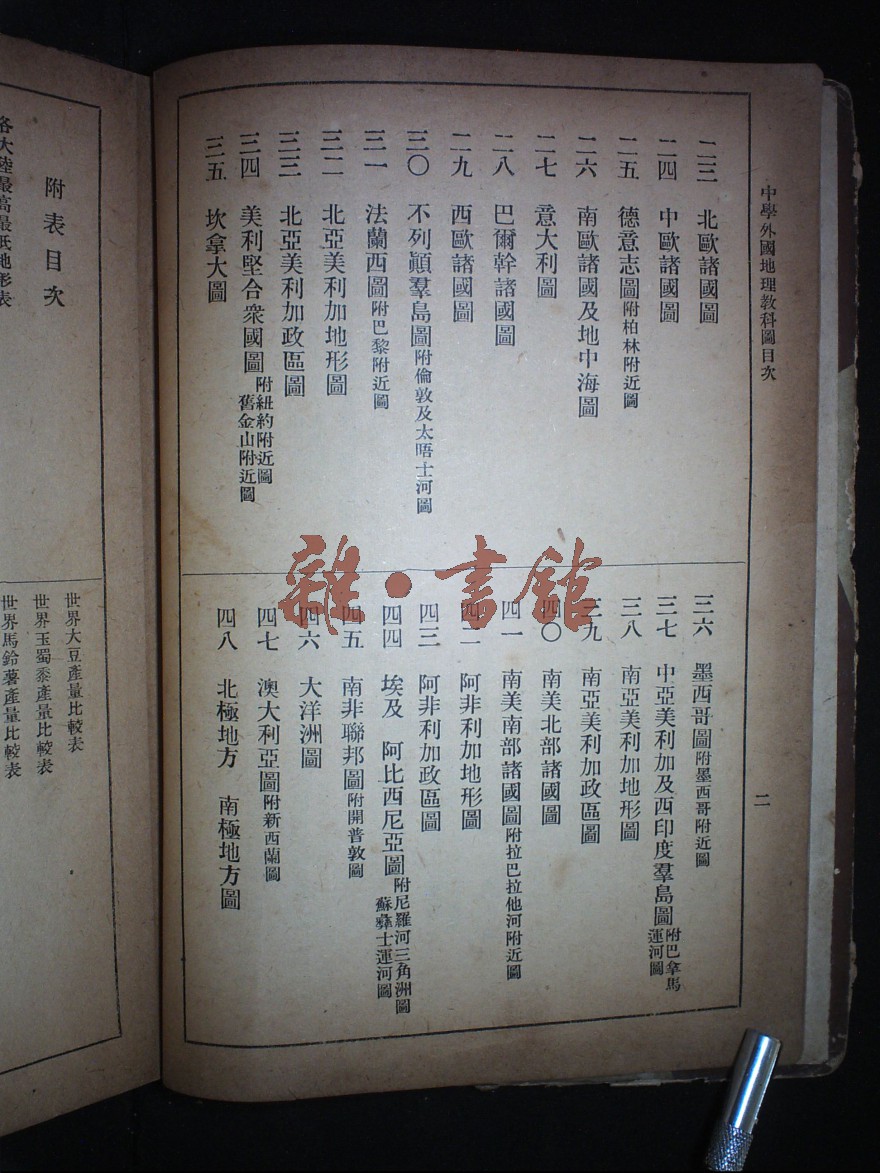 中學外國地理教科圖目次
二
二三 北歐諸國圖
二四 中歐諸國圖
二五 德意志圖附柏林附近圖
二六 南歐諸國及地中海圖
二七 意大利圖
二八 巴爾幹諸國圖
二九 西歐諸國圖
三〇 不列顚羣島圖附倫敦及太晤士河圖
三一 法蘭西圖附巴黎附近圖
三二 北亞美利加地形圖
三三 北亞美利加政區圖
三四 美利堅合衆國圖附紐約附近圖
舊金山附近圖
三五 坎拿大圖
三六 墨西哥圖附墨西哥附近圖
三七 中亞美利加及西印度羣島圖附巴拿馬
運河圖
三八 南亞美利加地形圖
三九 南亞美利加政區圖
四〇 南美北部諸國圖
四一 南美南部諸國圖附拉巴拉他河附近圖
四二 阿非利加地形圖
四三 阿非利加政區圖
四四 埃及 阿比西尼亞圖附尼羅河三角洲圖
蘇彝士運河圖
四五 南非聯邦圖附開普敦圖
四六 大洋洲圖
四七 澳大利亞圖附新西蘭圖
四八 北極地方 南極地方圖
雜·書館
附表目次
各大陸最高最低地形表
世界大豆產量比較表
世界玉蜀黍產量比較表
世界馬鈴薯產量比較表